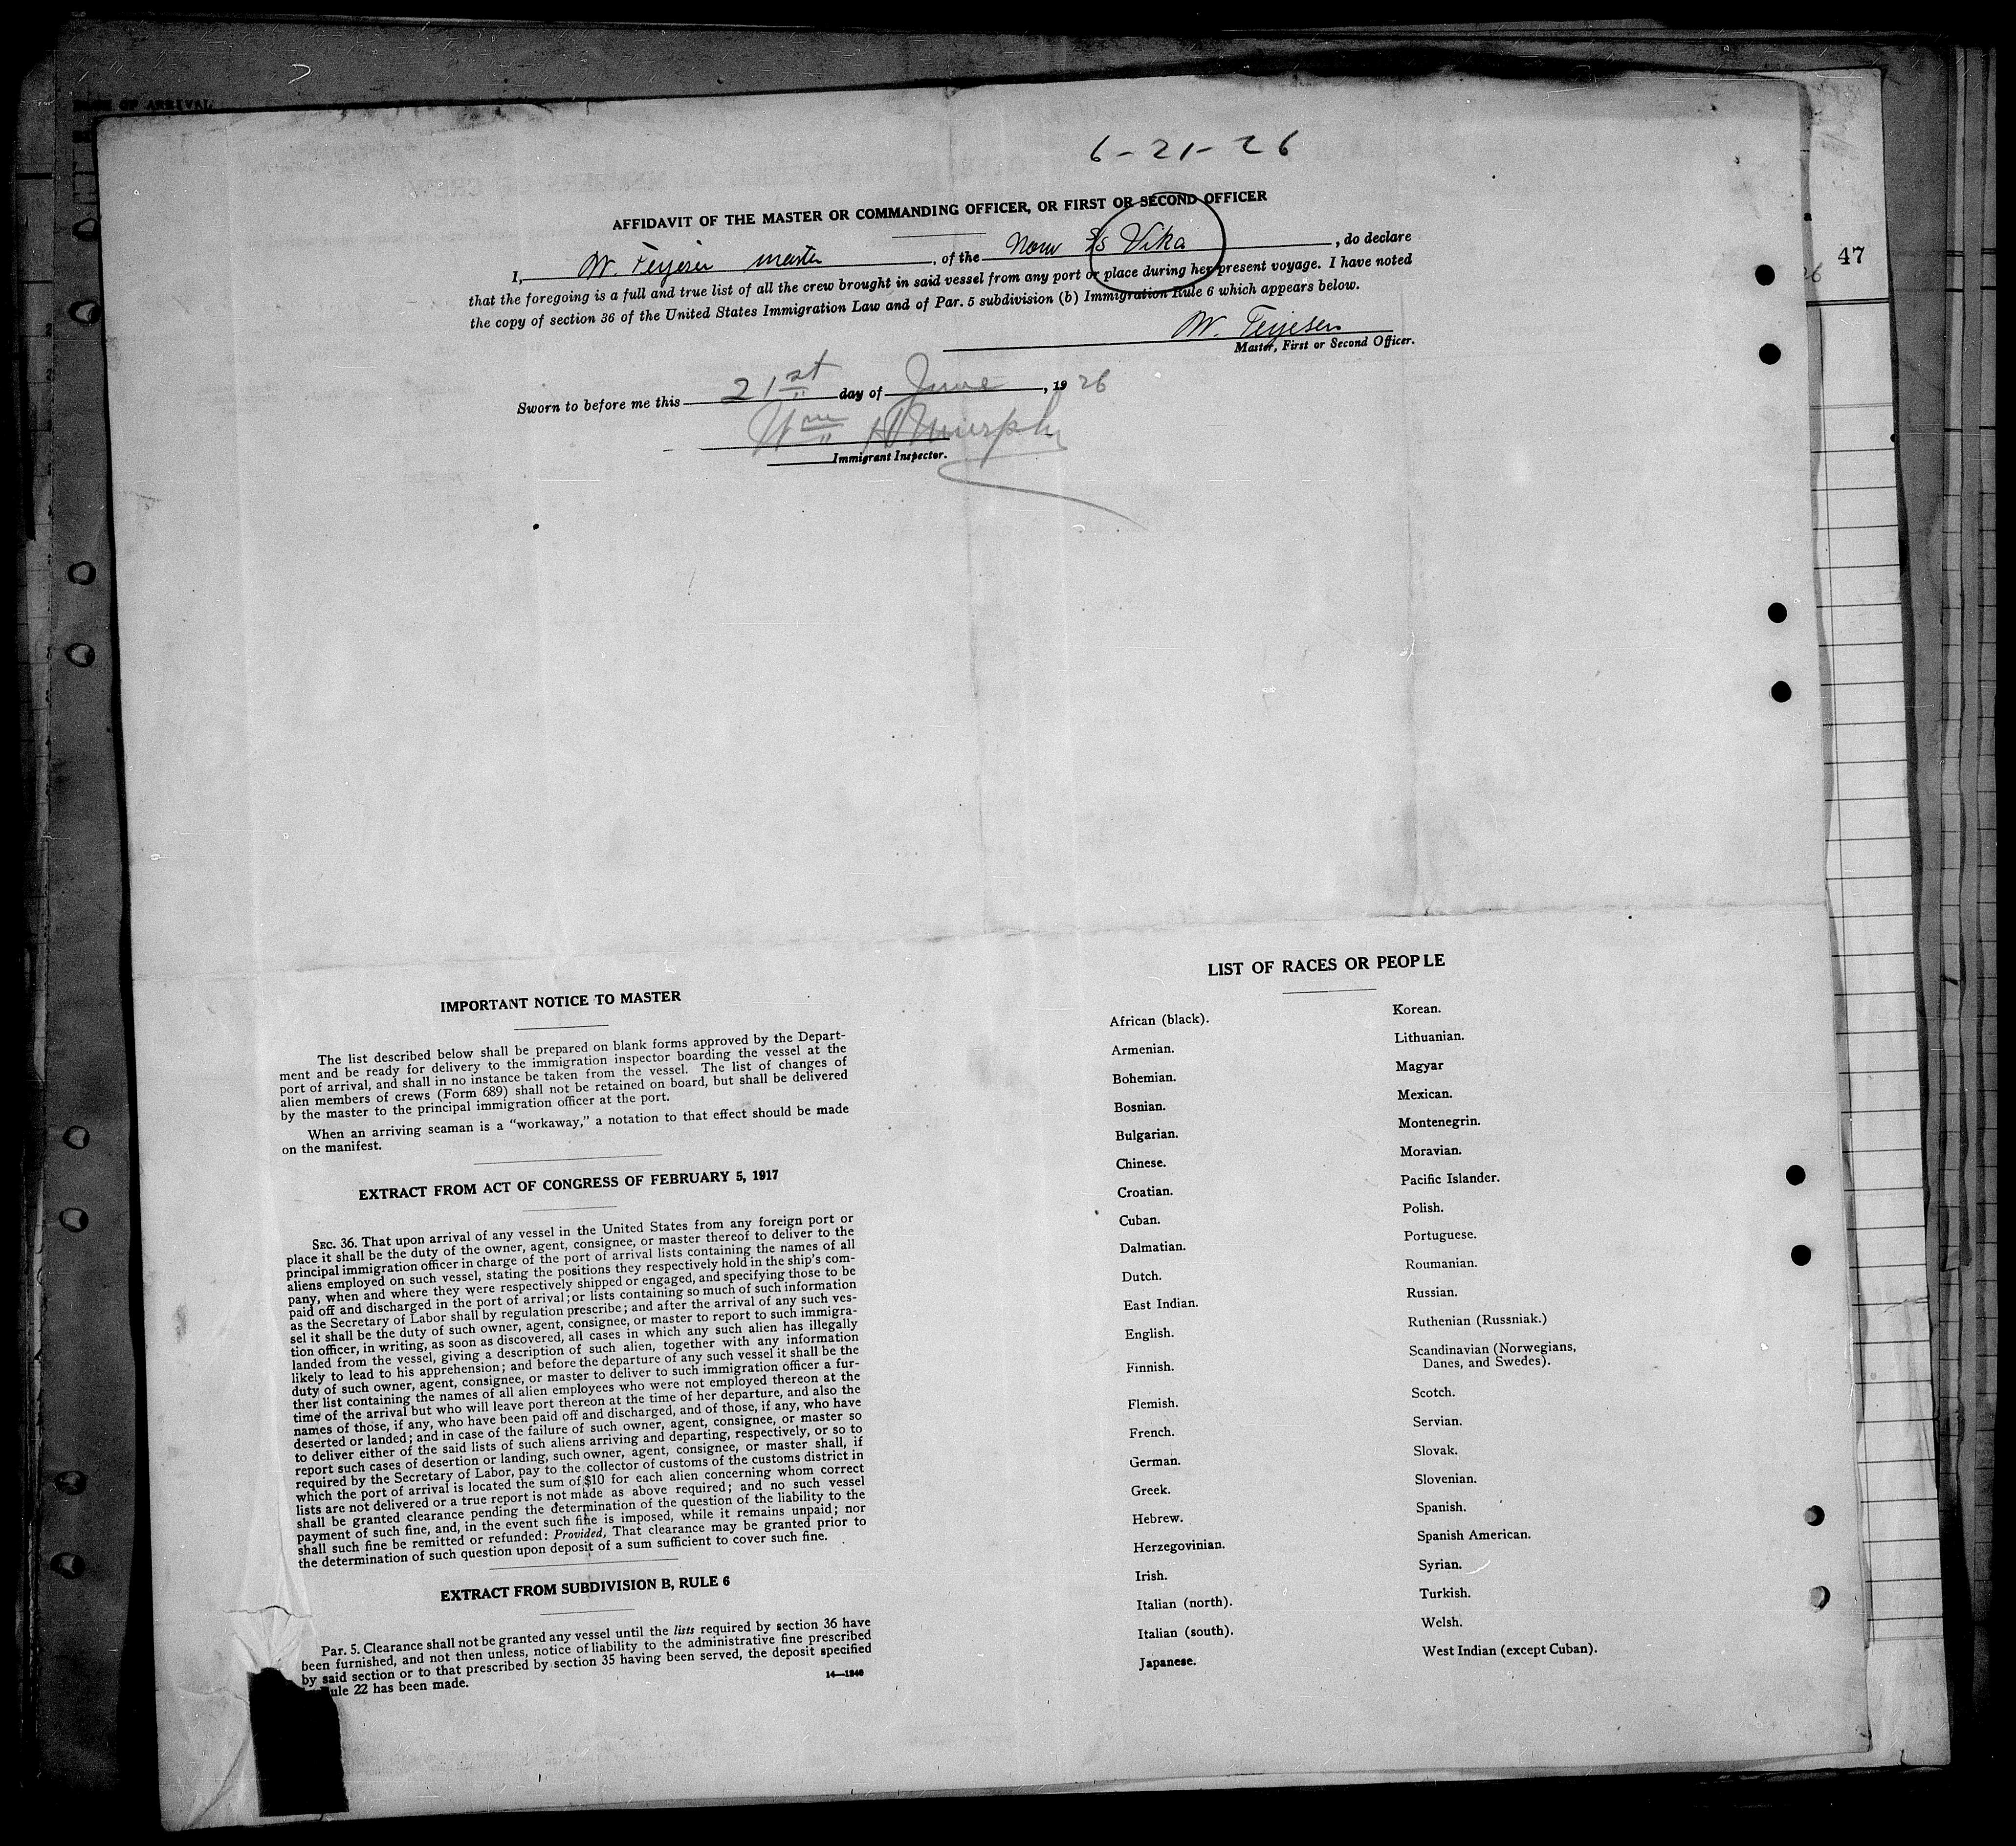 6-21-26
AFFIDAVIT OF THE MASTER OR COMMANDING OFFICER, OR FIRST OR SECOND OFFICER
I, W. Terjesen master, of the Norw S/s Vika, do declare
that the foregoing is a full and true list of all the crew brought in said vessel from any port or place during her present voyage. I have noted
the copy of section 36 of the United States Immigration Law and of Par. 5 subdivision (b) Immigration Rule 6 which appears below.
W. Terjesen
Master, First or Second Officer.
Sworn to before me this 21st day of June, 1926
Wm H Murphy
Immigrant Inspector.
47
26
IMPORTANT NOTICE TO MASTER
The list described below shall be prepared on blank forms approved by the Depart-
ment and be ready for delivery to the immigration inspector boarding the vessel at the
port of arrival, and shall in no instance be taken from the vessel. The list of changes of
alien members of crews (Form 689) shall not be retained on board, but shall be delivered
by the master to the principal immigration officer at the port.
When an arriving seaman is a "workaway," a notation to that effect should be made
on the manifest.
EXTRACT FROM ACT OF CONGRESS OF FEBRUARY 5, 1917
SEC. 36. That upon arrival of any vessel in the United States from any foreign port or
place it shall be the duty of the owner, agent, consignee, or master thereof to deliver to the
principal immigration officer in charge of the port of arrival lists containing the names of all
aliens employed on such vessel, stating the positions they respectively hold in the ship's com-
pany, when and where they were respectively shipped or engaged, and specifying those to be
paid off and discharged in the port of arrival; or lists containing so much of such information
as the Secretary of Labor shall by regulation prescribe; and after the arrival of any such ves-
sel it shall be the duty of such owner, agent, consignee, or master to report to such immigra-
tion officer, in writing, as soon as discovered, all cases in which any such alien has illegally
landed from the vessel, giving a description of such alien, together with any information
likely to lead to his apprehension; and before the departure of any such vessel it shall be the
duty of such owner, agent, consignee, or master to deliver to such immigration officer a fur-
ther list containing the names of all alien employees who were not employed thereon at the
time of the arrival but who will leave port thereon at the time of her departure, and also the
names of those, if any, who have been paid off and discharged, and of those, if any, who have
deserted or landed; and in case of the failure of such owner, agent, consignee, or master so
to deliver either of the said lists of such aliens arriving and departing, respectively, or so to
report such cases of desertion or landing, such owner, agent, consignee, or master shall, if
required by the Secretary of Labor, pay to the collector of customs of the customs district in
which the port of arrival is located the sum of $10 for each alien concerning whom correct
lists are not delivered or a true report is not made as above required; and no such vessel
shall be granted clearance pending the determination of the question of the liability to the
payment of such fine, and, in the event such fine is imposed, while it remains unpaid; nor
shall such fine be remitted or refunded: Provided, That clearance may be granted prior to
the determination of such question upon deposit of a sum sufficient to cover such fine.
EXTRACT FROM SUBDIVISION B, RULE 6
Par. 5. Clearance shall not be granted any vessel until the lists required by section 36 have
been furnished, and not then unless, notice of liability to the administrative fine prescribed
by said section or to that prescribed by section 35 having been served, the deposit specified
Rule 22 has been made.
14—1940
LIST OF RACES OR PEOPLE
African (black).
Armenian.
Bohemian.
Bosnian.
Bulgarian.
Chinese.
Croatian.
Cuban.
Dalmatian.
Dutch.
East Indian.
English.
Finnish.
Flemish.
French.
German.
Greek.
Hebrew.
Herzegovinian.
Irish.
Italian (north).
Italian (south).
Japanese.
Korean.
Lithuanian.
Magyar
Mexican.
Montenegrin.
Moravian.
Pacific Islander.
Polish.
Portuguese.
Roumanian.
Russian.
Ruthenian (Russniak.)
Scandinavian (Norwegians,
Danes, and Swedes).
Scotch.
Servian.
Slovak.
Slovenian.
Spanish.
Spanish American.
Syrian.
Turkish.
Welsh.
West Indian (except Cuban).